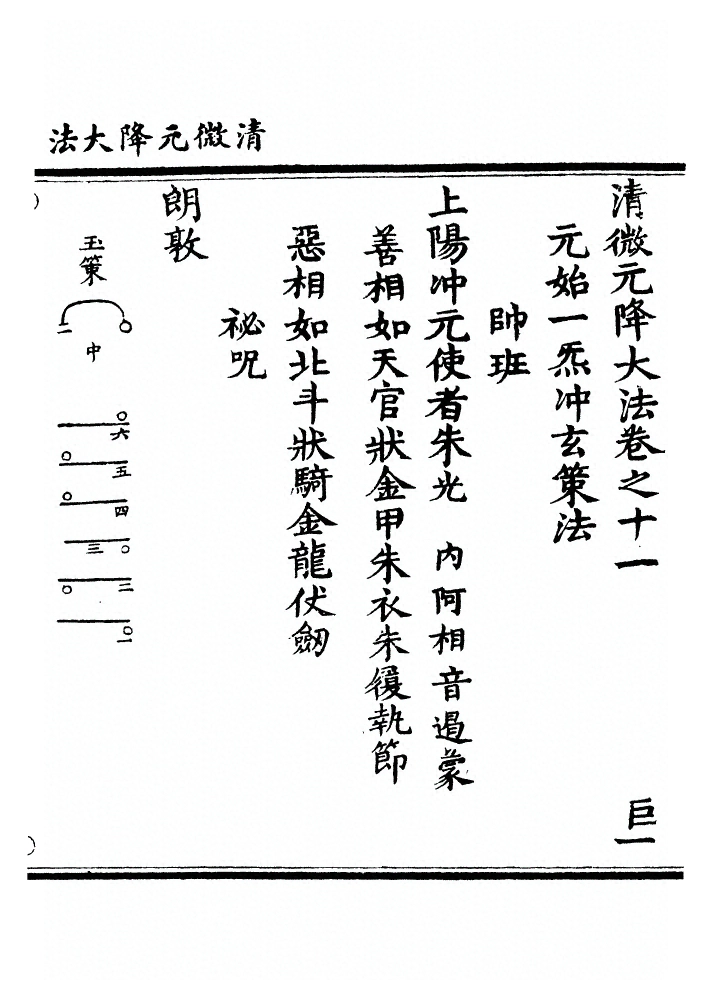 清微元降大法
清微元降大法卷之十一 巨一
元始一炁冲玄策法
帥班
上陽冲元使者朱光 內阿相音遏蒙
善相如天官狀金甲朱衣朱履執節
惡相如北斗狀騎金龍伏劒
祕呪
朗敦
玉策
二
中
六
五
四
三
二
一